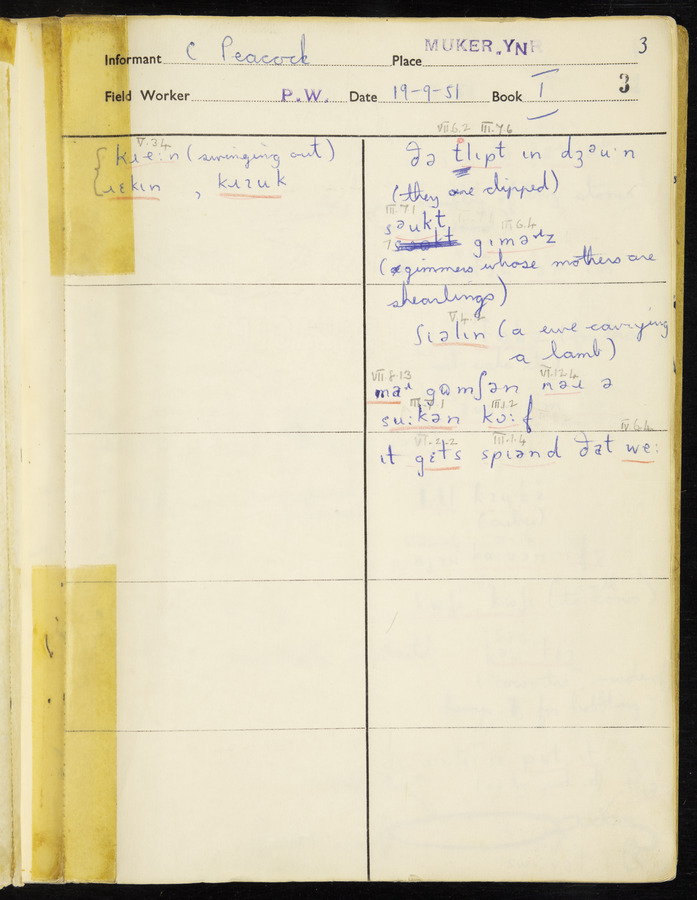 Informant C Peacock Place MUKER, YNR 3
Field Worker P.W. Date 19-9-51 Book I 3
V.3.4
kɹeːn (swinging out)
ɹɛkɪn , kɹʊk
VII.6.2 III.7.6
ðə tlɪpt ɪn dʒəuˑn
(they are clipped)
III.7.1
səukt III.6.4
gɪməɹz
(gimmers whose mothers are
shearlings)
ʃɪəlɪn (a ewe carrying
a lamb)
VII.8.13 VI.12.4
maɹ gɒmʃən nəɹ ə
III.1.2
suːkən kɔːf
III.1.4 IV.6.4
ɪt gɛts spɪənd ðat weː